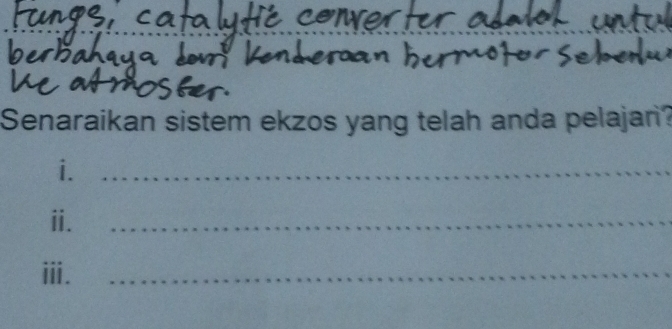 Fungsi catalytic converter adalah untu
berbahaya dari kenderaan bermotor sebelu
ke atmosfer.
Senaraikan sistem ekzos yang telah anda pelajari?
i.
ii.
iii.